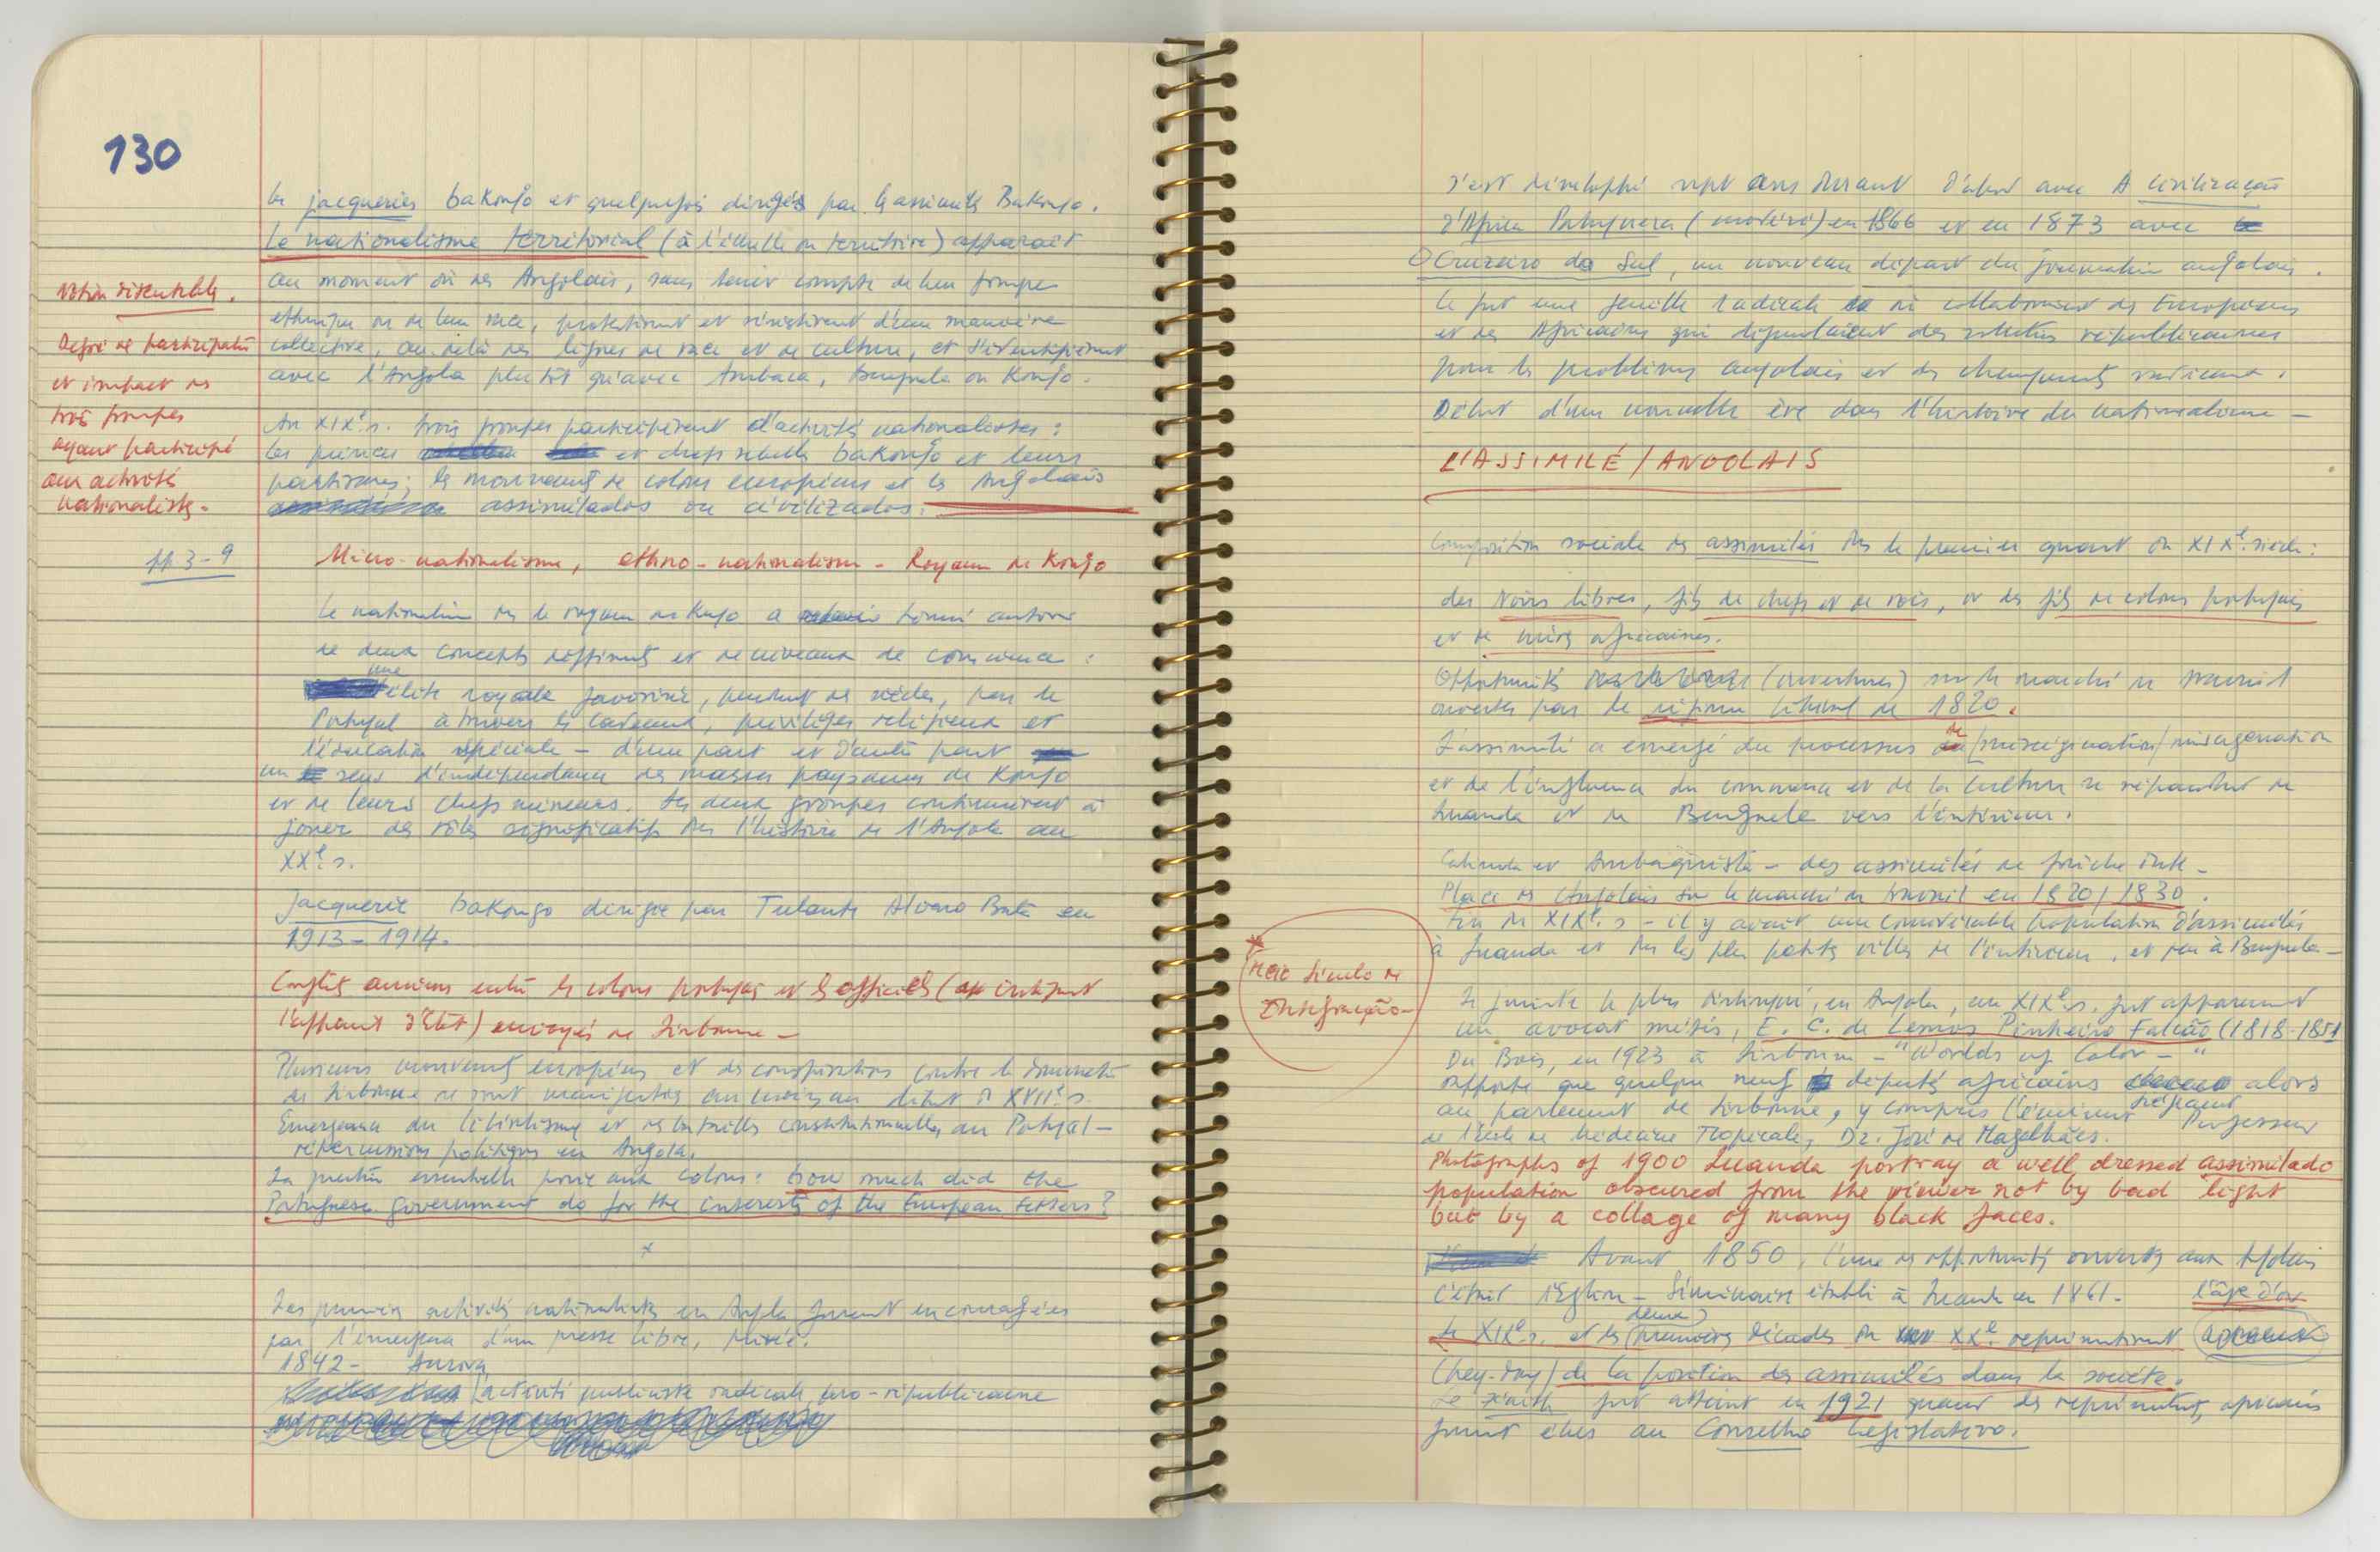 130
les jacqueries bakongo et quelquefois dirigés par les assimilés Bakongo.
Le nationalisme territorial (à l'échelle du territoire) apparaît
au moment où des Angolais, sans tenir compte de leur groupe
ethnique ou de leur race, protestèrent et résistèrent d'une manière
collective, au-delà des lignes de race et de culture, et s'identifièrent
avec l'Angola plutôt qu'avec Ambaca, Benguela ou Kongo.
Notion discutable.
Degré de participation
et impact des
trois groupes
ayant participé
aux activités
nationalistes.
Au XIXe. s. trois groupes participèrent d'activités nationalistes :
les princes et chefs rebelles bakongo et leurs
partisans; les mouvements de colons européens et les Angolais
assimilados ou civilizados.
pp. 3-9
Micro-nationalisme, ethno-nationalisme - Royaume de Kongo
Le nationalisme ds le royaume de Kongo a tourné autour
de deux concepts différents et de niveaux de conscience :
une élite royale favorisée, pendant des siècles, par le
Portugal à travers les cadeaux, privilèges religieux et
l'éducation spéciale - d'une part et d'autre part
un sens d'indépendance des masses paysannes de Kongo
et de leurs chefs mineurs. Les deux groupes continuèrent à
jouer des rôles significatifs ds l'histoire de l'Angola au
XXe. s.
Jacquerie bakongo dirigée par Tulante Alvaro Buta en
1913-1914.
Conflits anciens entre les colons portugais et les officiels (
l'appareil d'État) envoyés de Lisbonne -
Plusieurs mouvements européens et des conspirations contre la
de Lisbonne se sont manifestés au moins au début du XVIIe. s.
Emergence du libéralisme et des batailles constitutionnelles au Portugal -
répercussions politiques en Angola.
La question essentielle posée aux colons : how much did the
Portuguese government do for the interests of the European settlers ?
x
Les premières activités nationalistes en Angola furent encouragées
par l'émergence d'une presse libre, privée.
1842 - Aurora
activité publiciste radicale pro-républicaine
s'est développé vingt ans durant d'abord avec A Civilização
d'Africa Portuguesa (modéré) en 1866 et en 1873 avec
O Cruzeiro do Sul, un nouveau départ du journalisme angolais.
Ce fut une feuille radicale où collaborèrent des Européens
et des Africains qui défendaient des solutions républicaines
pour les problèmes angolais et des changements radicaux.
Début d'une nouvelle ère dans l'histoire du nationalisme -
L'ASSIMILÉ / ANGOLAIS
Composition sociale des assimilés ds le premier quart du XIXe. siècle :
des Noirs libres, fils de chefs et de rois, et des fils de colons portugais
et de mères africaines.
Opportunités (ouvertures) sur le marché du travail
ouvertes par le régime libéral de 1820.
L'assimilé a émergé du processus de /miscigination/miscegenation
et de l'influence du commerce et de la culture se répandant de
Luanda et de Benguela vers l'intérieur.
Calunda et Ambaquista - des assimilés de fraîche date -
Place des Angolais sur le marché du travail en 1820/1830.
Fin du XIXe. s - il y avait une considérable population d'assimilés
à Luanda et ds les plus petites villes de l'intérieur, et peu à Benguela -
Meio século de
integração -
Le juriste le plus distingué, en Angola, au XIXe. s. fut apparemment
un avocat métis, E. C. de Lemos Pinheiro Falcão (1818-1851
Du Bois, en 1923 à Lisbonne - "Worlds of Color - "
rapporte que quelque neuf députés africains alors
au parlement de Lisbonne, y compris l'éminent Professeur
de l'école de Médecine Tropicale, Dr. José de Magalhães.
Photographs of 1900 Luanda portray a well dressed assimilado
population obscured from the viewer not by bad light
but by a collage of many black faces.
Avant 1850, l'une des opportunités ouverts aux Angolais
c'était l'Eglise - Séminaire établi à Luanda en 1861. l'âge d'or
le XIXe. s. et les (deux) premières décades du XXe représentèrent
(hey-day) de la position des assimilés dans la société.
Le zénith fut atteint en 1921 quand des représentants africains
furent élus au Conselho Legislativo.